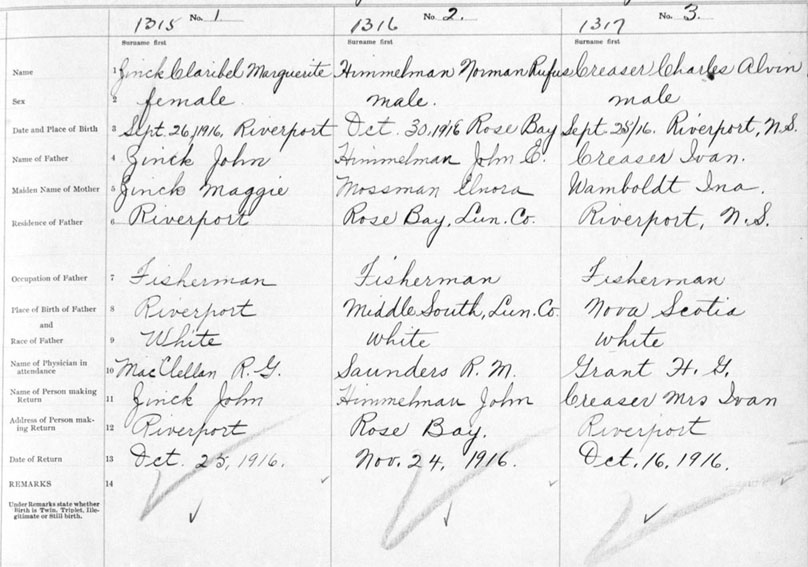 1315 No. 1 1316 No. 2. 1317 No. 3.
Surname first Surname first Surname first
Name 1 Zinck Claribel Marguerite Himmelman Norman Rufus Creaser Charles Alvin
Sex 2 female. male. male
Date and Place of Birth 3 Sept. 26/1916, Riverport Oct. 30, 1916 Rose Bay Sept. 25/16. Riverport, N.S.
Name of Father 4 Zinck John Himmelman John E. Creaser Ivan.
Maiden Name of Mother 5 Zinck Maggie Mossman Elnora Wamboldt Ina.
Residence of Father 6 Riverport Rose Bay, Lun. Co. Riverport, N.S.
Occupation of Father 7 Fisherman Fisherman Fisherman
Place of Birth of Father 8 Riverport Middle South, Lun. Co. Nova Scotia
and
Race of Father 9 White White White
Name of Physician in
attendance 10 MacClellan R. G. Saunders R. M. Grant H. G.
Name of Person making
Return 11 Zinck John Himmelman John Creaser Mrs Ivan
Address of Person mak-
ing Return 12 Riverport Rose Bay. Riverport
Date of Return 13 Oct. 25, 1916. Nov. 24, 1916. Oct. 16, 1916.
REMARKS 14
Under Remarks state whether
Birth is Twin, Triplet, Ille-
gitimate or Still birth.